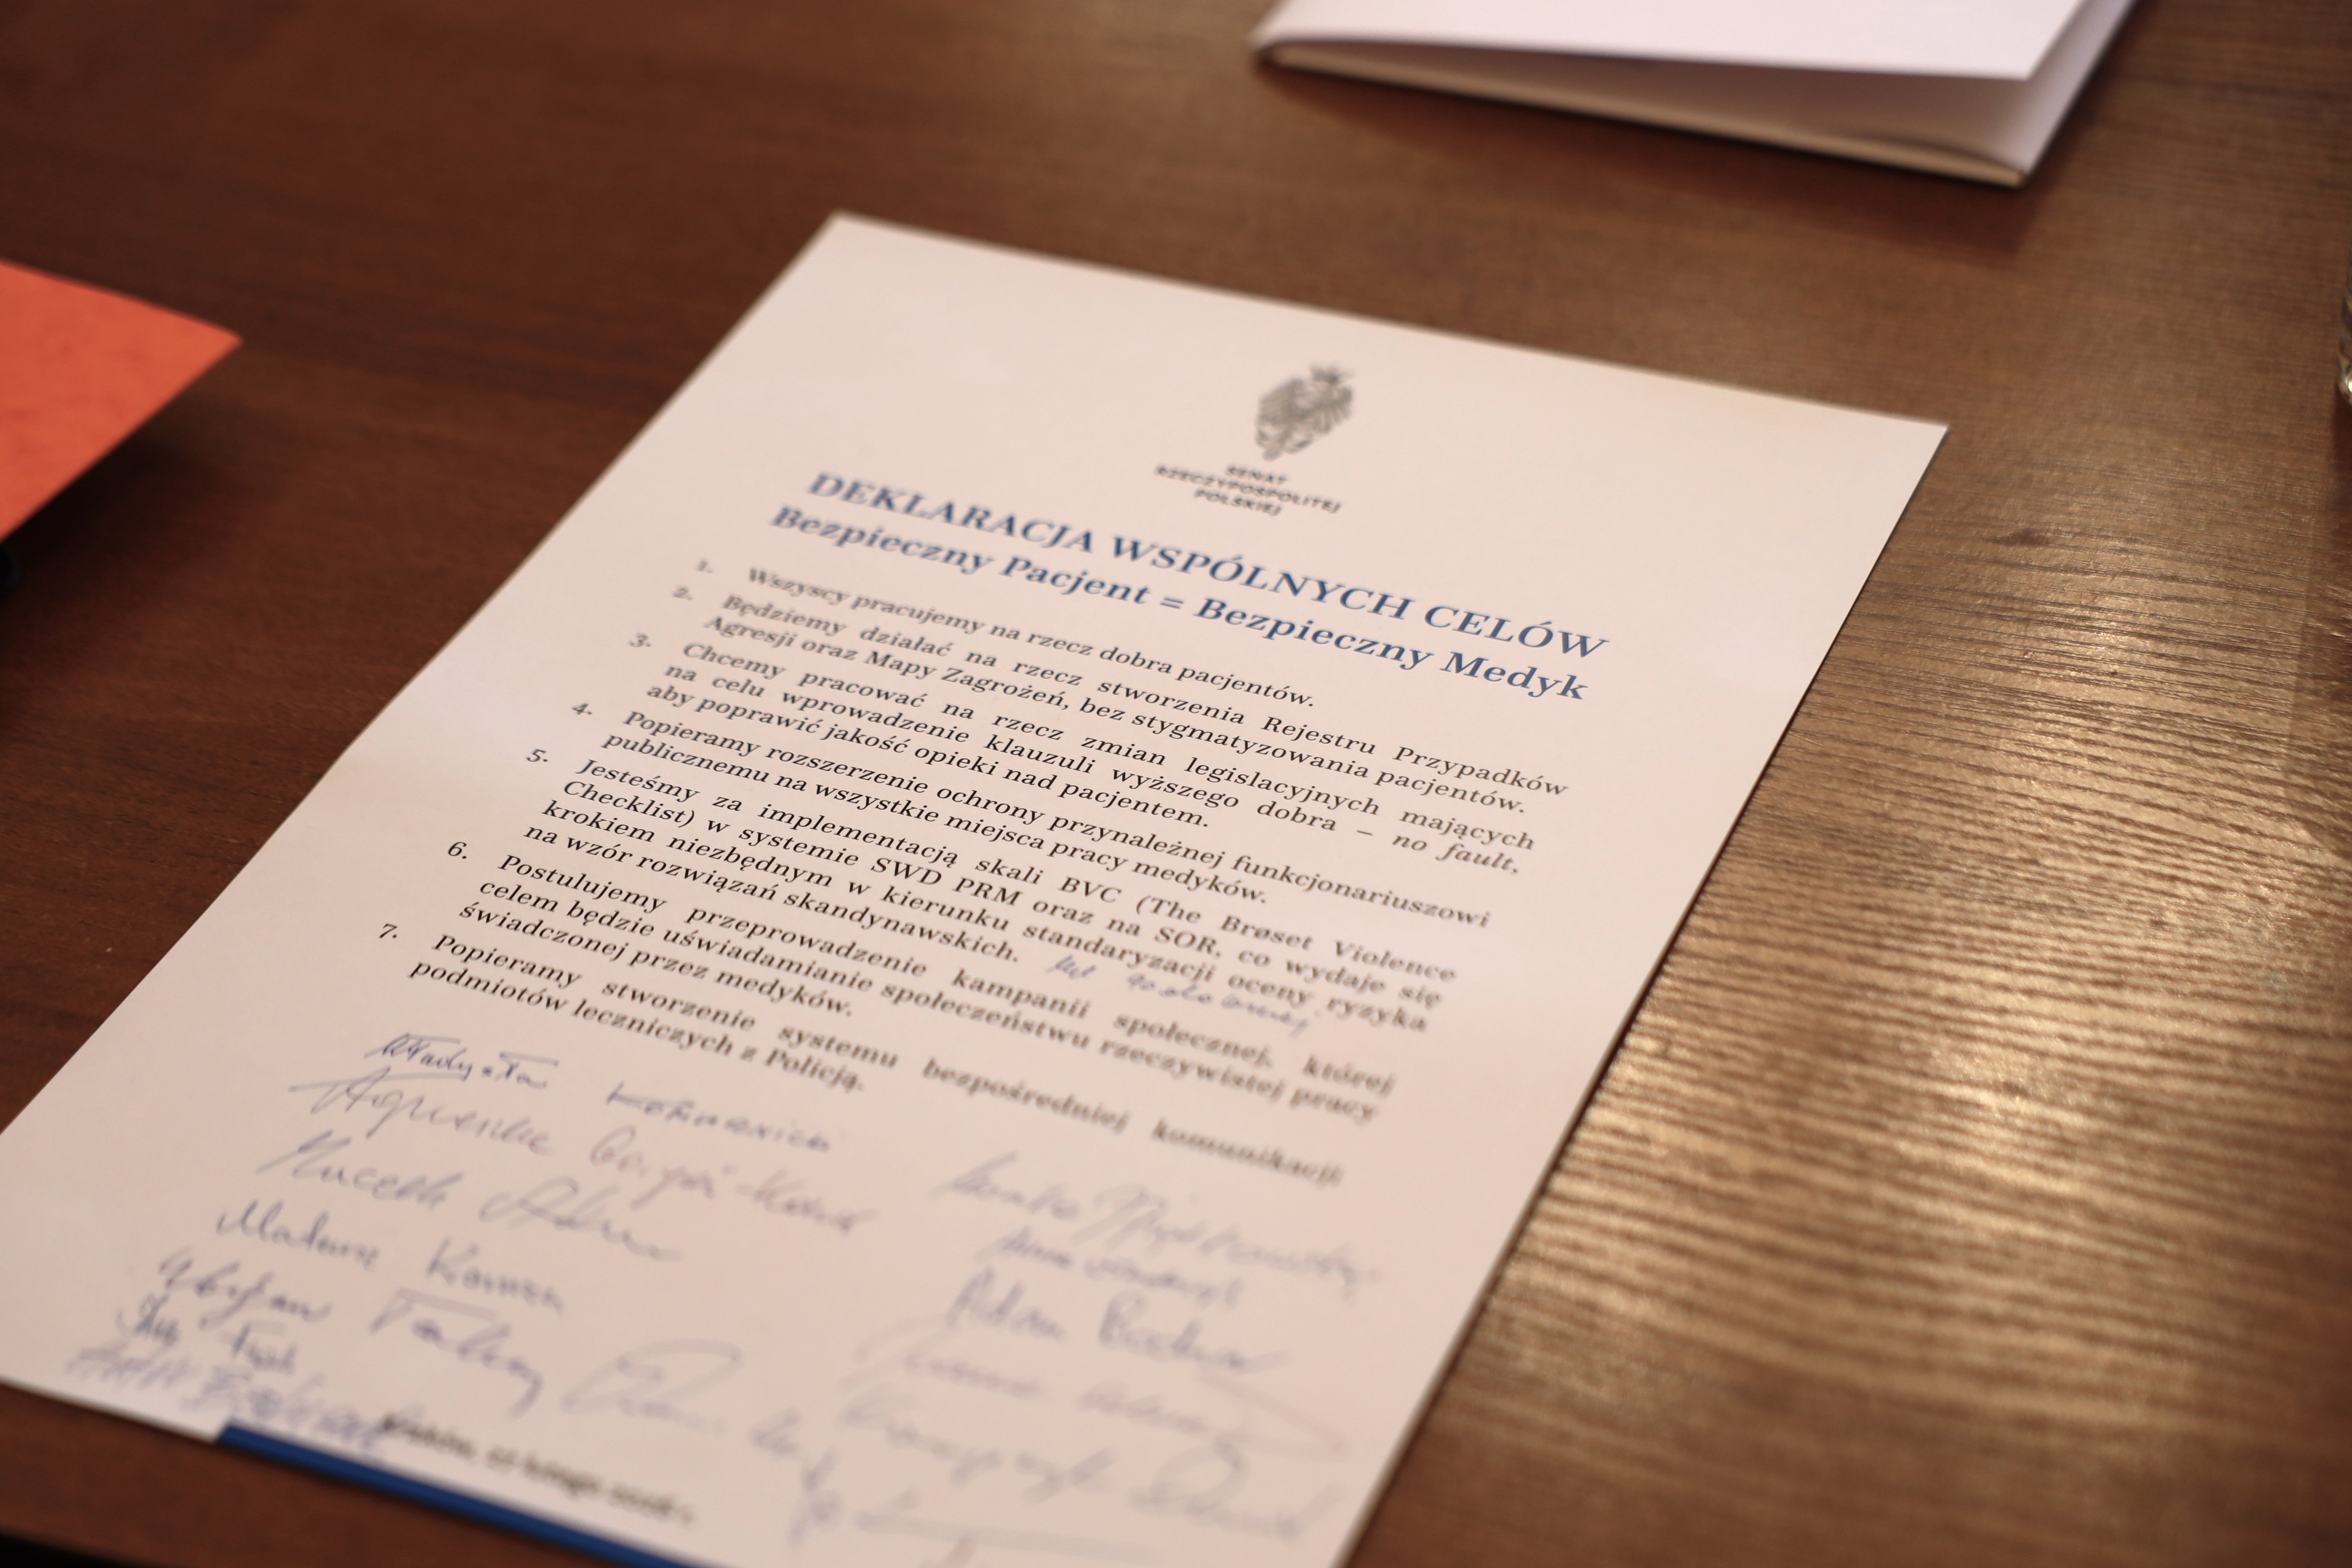 SENAT
RZECZYPOSPOLITEJ
POLSKIEJ
DEKLARACJA WSPÓLNYCH CELÓW
Bezpieczny Pacjent = Bezpieczny Medyk
1. Wszyscy pracujemy na rzecz dobra pacjentów.
2. Będziemy działać na rzecz stworzenia Rejestru Przypadków
Agresji oraz Mapy Zagrożeń, bez stygmatyzowania pacjentów.
3. Chcemy pracować na rzecz zmian legislacyjnych mających
na celu wprowadzenie klauzuli wyższego dobra – no fault,
aby poprawić jakość opieki nad pacjentem.
4. Popieramy rozszerzenie ochrony przynależnej funkcjonariuszowi
publicznemu na wszystkie miejsca pracy medyków.
5. Jesteśmy za implementacją skali BVC (The Brøset Violence
Checklist) w systemie SWD PRM oraz na SOR, co wydaje się
krokiem niezbędnym w kierunku standaryzacji oceny ryzyka
na wzór rozwiązań skandynawskich.
6. Postulujemy przeprowadzenie kampanii społecznej, której
celem będzie uświadamianie społeczeństwu rzeczywistej pracy
świadczonej przez medyków.
7. Popieramy stworzenie systemu bezpośredniej komunikacji
podmiotów leczniczych z Policją.
Agnieszka
Mateusz
Adam
Kraków, lutego